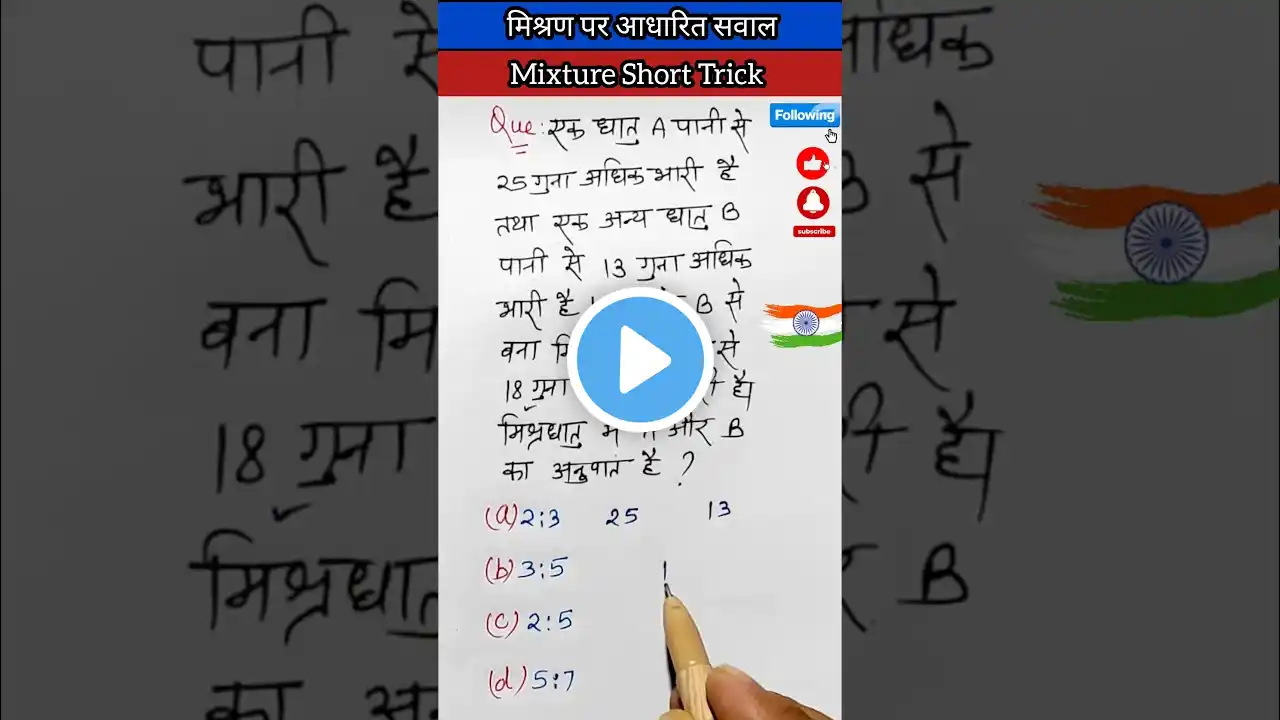 मिश्रण पर आधारित सवाल
Mixture Short Trick
Following
Que: एक धातु A पानी से
25 गुना अधिक भारी है
तथा एक अन्य धातु B
पानी से 13 गुना अधिक
भारी है B से
बना से
18 गुना है।
मिश्रधातु में और B
का अनुपात है ?
subscribe
(a) 2:3 25 13
(b) 3:5 1
(c) 2:5
(d) 5:7
पानी से
भारी है
बना मि
18 गुना
मिश्रधातु
से
से
है।
B